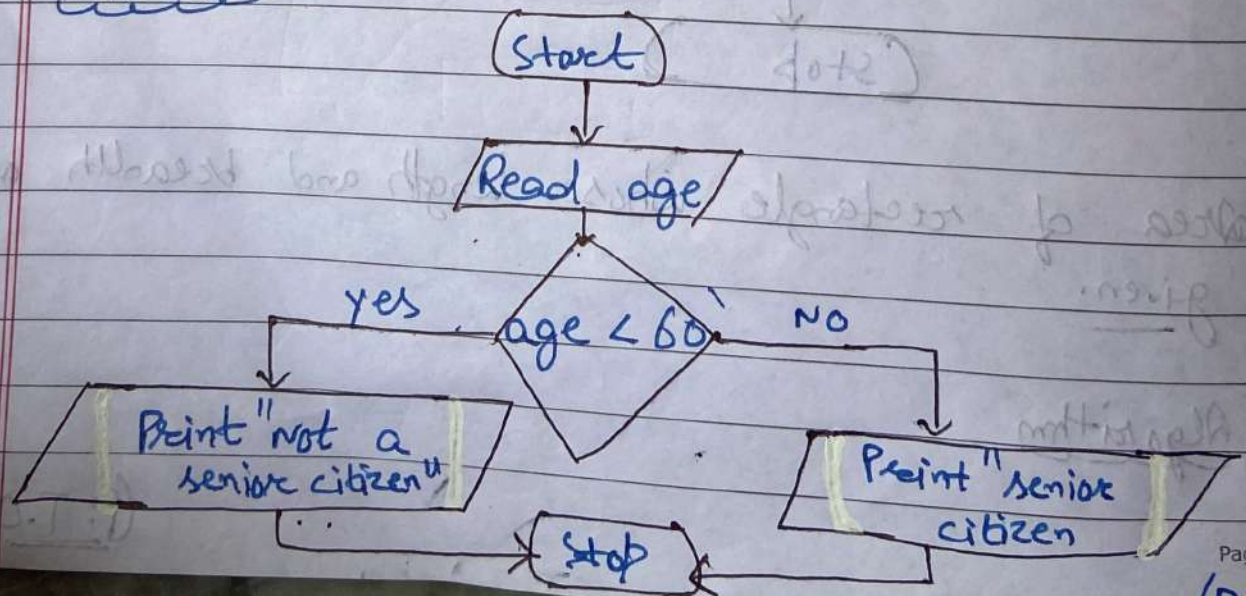 Start
Read age
age < 60
yes
NO
Print "Not a
senior citizen"
Print "senior
citizen
Stop
Pag